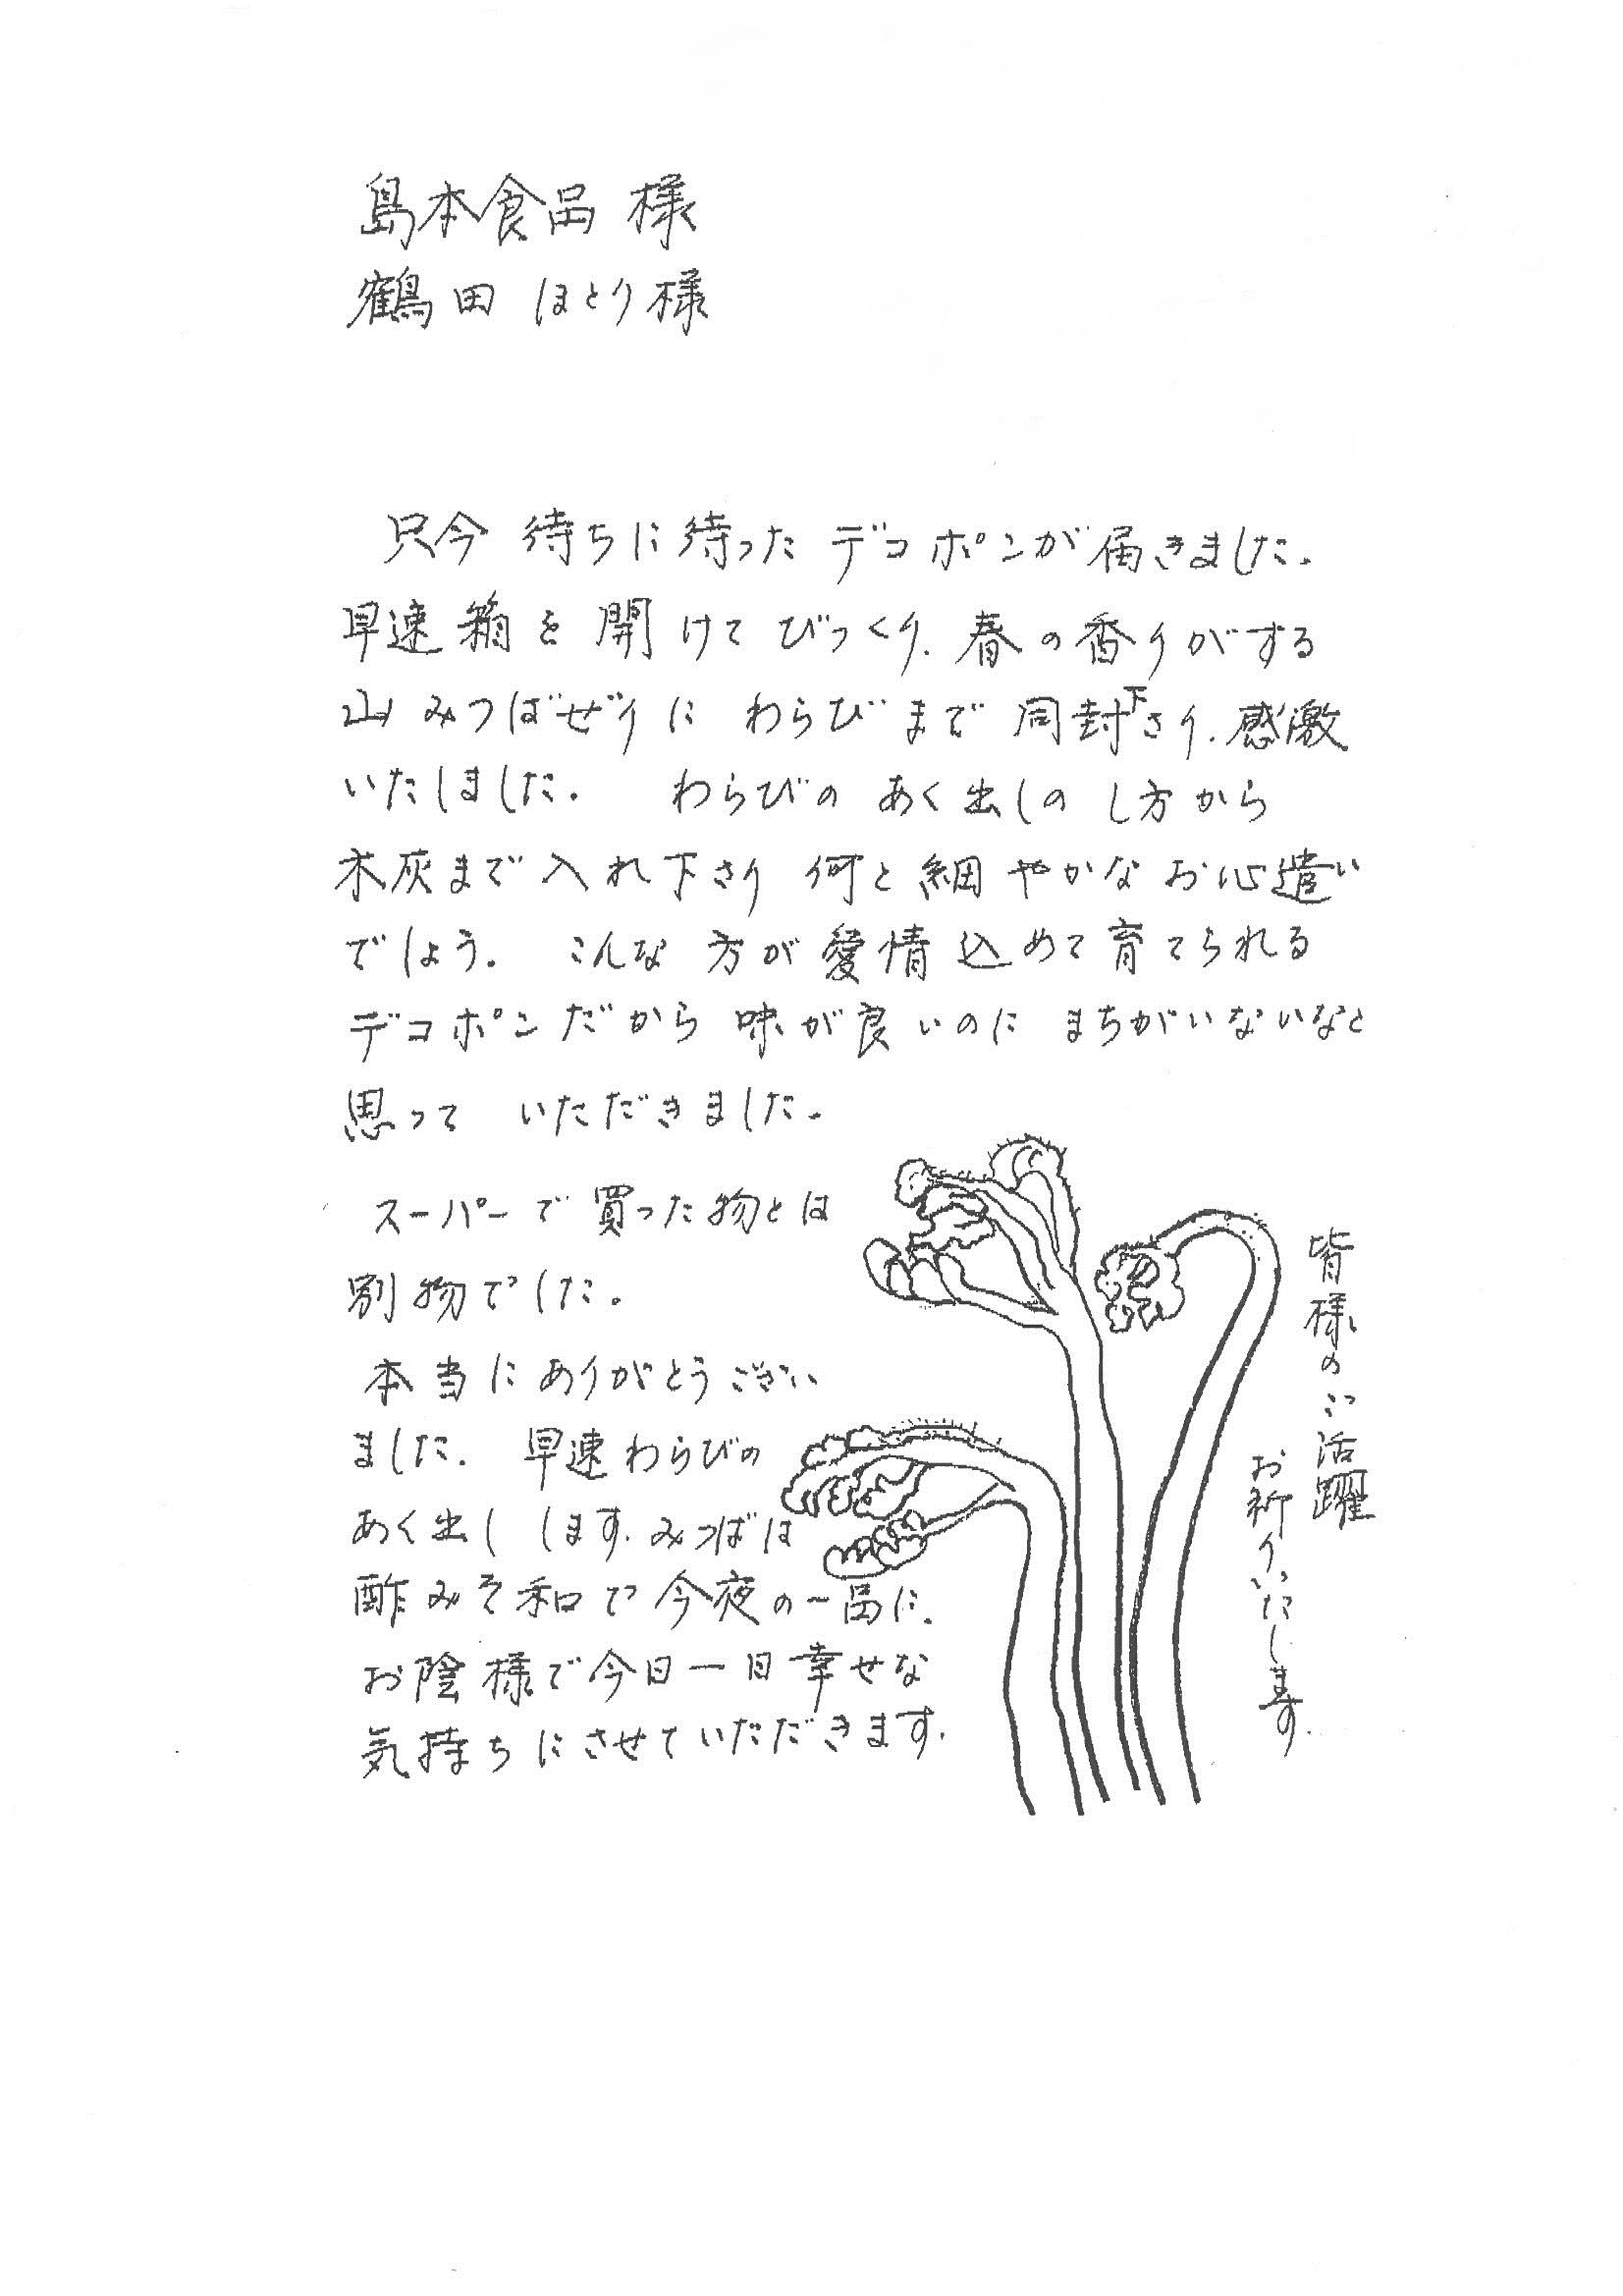 島本食品 様
鶴田 ほとり様
只今 待ちに待った デコポンが届きました.
早速箱を開けてびっくり.春の香りがする
山みつばぜりに わらびまで同封下さり.感激
いたしました. わらびの あく出しの し方から
木灰まで入れ下さり 何と細やかなお心遣い
でしょう. こんな方が愛情込めて育てられる
デコポンだから 味が良いのに まちがいないなと
思って いただきました.
スーパーで買った物とは
別物でした.
本当にありがとうござい
ました. 早速わらびの
あく出し します.みつばは
酢みそ和で今夜の一品に.
お陰様で今日一日幸せな
気持ちにさせていただきます.
皆様のご活躍
お祈りいたします.